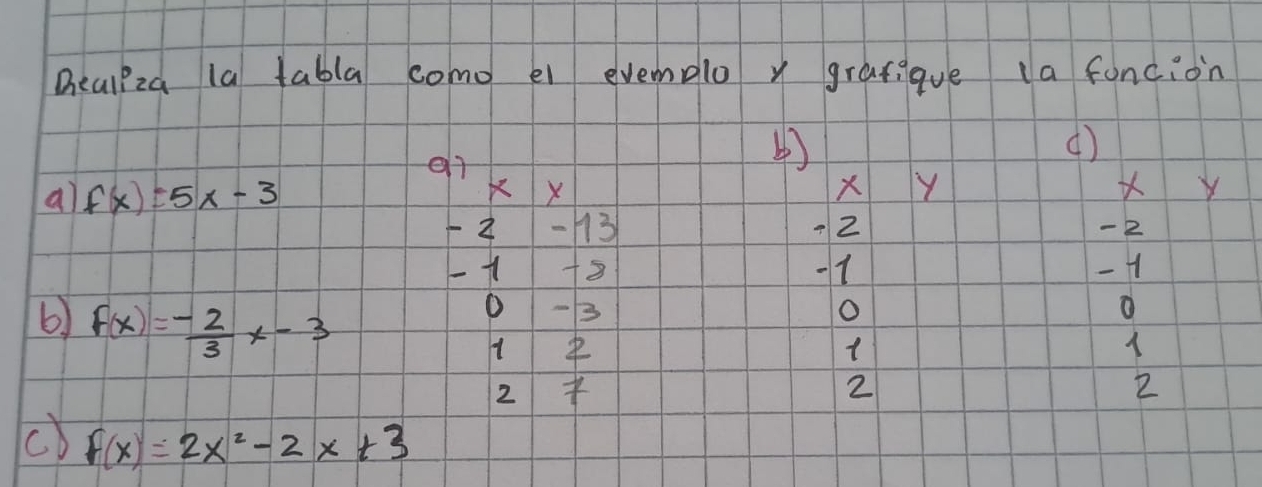 Realiza la tabla como el evemplo y grafique la función
a) b) c)
a) f(x)=5x-3 x y x y x y
-2 -13 -2 -2
-1 -8 -1 -1
b) f(x)=-2/3 x-3 0 -3 0 0
1 2 1 1
2 7 2 2
c) f(x)=2x²-2x+3